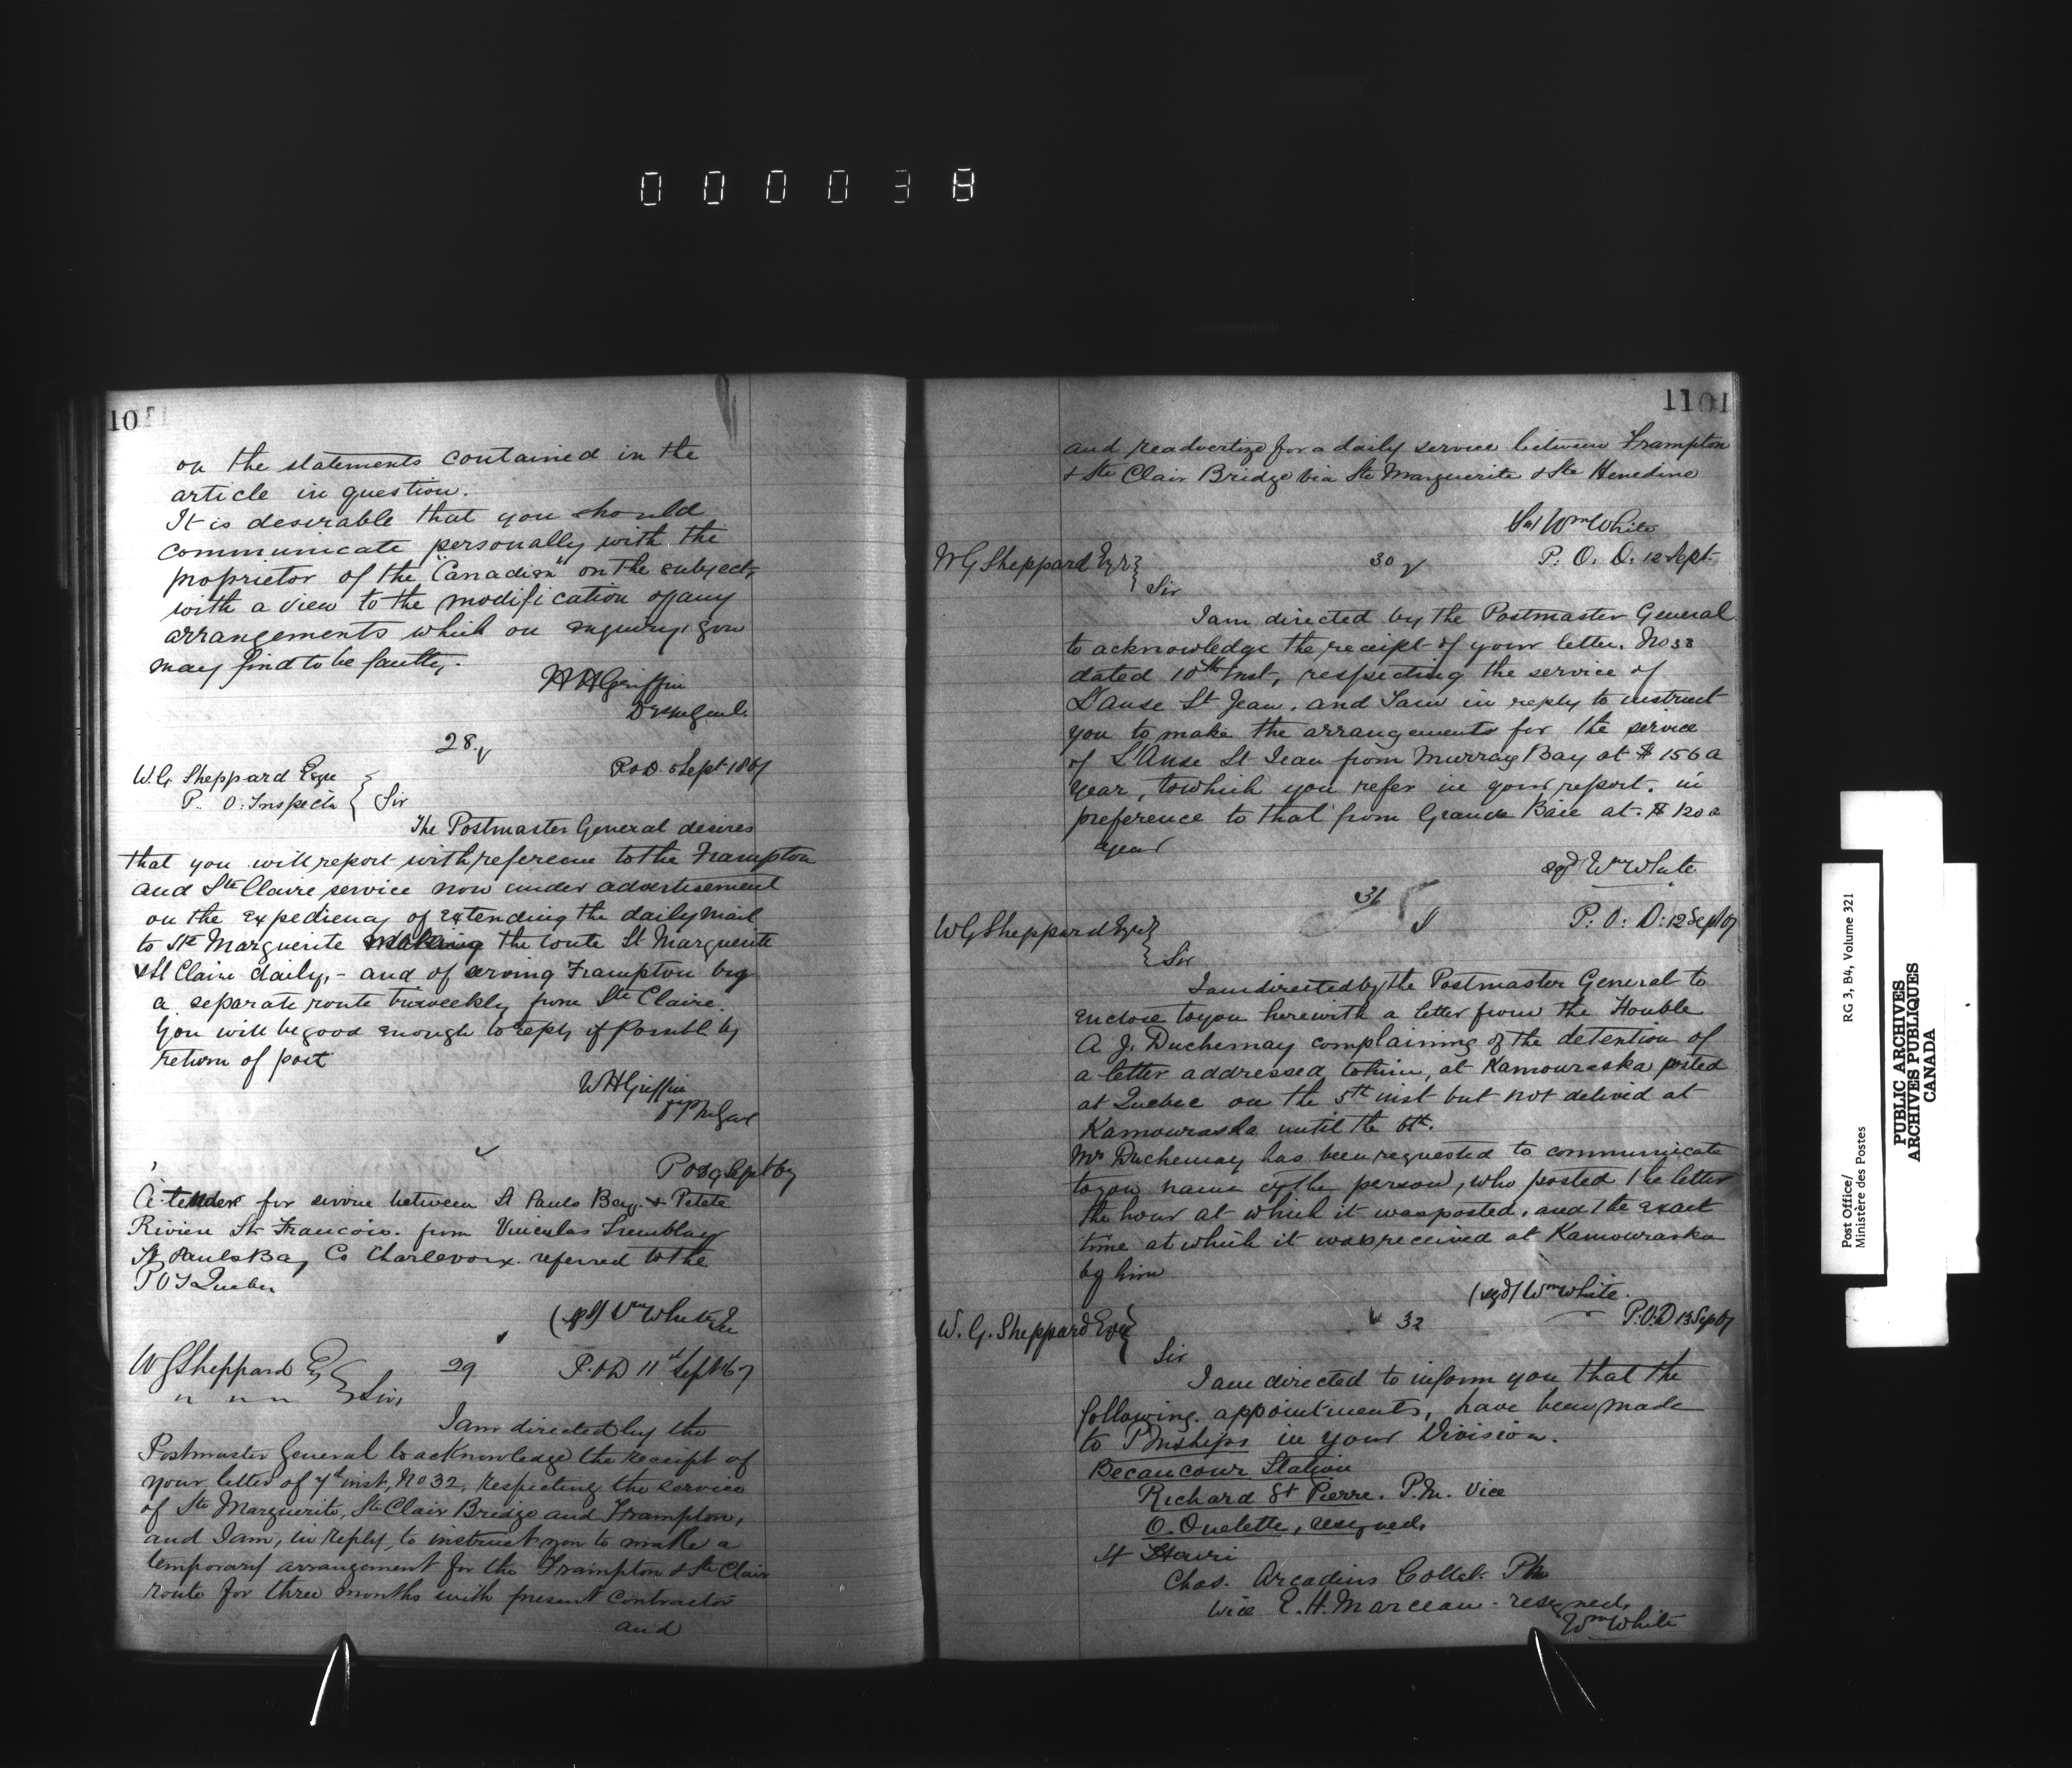 000038
10
on the statements contained in the
article in question.
It is desirable that you should
communicate personally with the
proprietor of the "Canadian" on the subject,
with a view to the modification of any
arrangements which on enquiry, you
may find to be faulty.
W H Griffin
28.
P.O.D. 5 Sept 1867
W.G. Sheppard Esqre
P. O. Inspectr } Sir
The Postmaster General desires
that you will report with reference to the Frampton
and Ste Claire service now under advertisement
on the expediency of extending the daily mail
to Ste Marguerite making the route St Marguerite
& St Claire daily, - and of serving Frampton by
a separate route triweekly from Ste Claire.
You will be good enough to reply if possible by
return of post
W H Griffin
P O D 9 Sept 67
A tender for service between St Pauls Bay & Petite
Riviere St Francois from Tremblay
St Pauls Bay Co Charlevoix referred to the
P O I Quebec
(sgd) Wm White
W G Sheppard Esq 29 P.O.D 11th Sept 1867
" " " } Sir,
I am directed by the
Postmaster General to acknowledge the receipt of
your letter of 7th inst, No 32, respecting the service
of Ste Marguerite, Ste Clair Bridge and Frampton,
and I am, in reply, to instruct you to make a
temporary arrangement for the Frampton & Ste Clair
route for three months with present contractor
and
1101
and readvertize for a daily service between Frampton
& Ste Clair Bridge via Ste Marguerite & Ste Henedine
Wm White
W G Sheppard Esqr } 30 P. O. D. 12 Sept
Sir
I am directed by the Postmaster General
to acknowledge the receipt of your letter. No 33
dated 10th Inst, respecting the service of
L'Anse St Jean, and I am in reply to instruct
you to make the arrangements for the service
of L'Anse St Jean from Murray Bay at $156 a
year, to which you refer in your report, in
preference to that from Grande Baie at $120 a
year
sgd Wm White
31
W G Sheppard Esqr } P. O. D. 12 Sept 67
Sir
I am directed by the Postmaster General to
enclose to you herewith a letter from the Honble
A. J. Duchesnay complaining of the detention of
a letter addressed to him, at Kamouraska posted
at Quebec on the 5th inst but not delived at
Kamouraska until the 6th.
Mr Duchesnay has been requested to communicate
to you name of the person, who posted the letter
the hour at which it was posted, and the exact
time at which it was received at Kamouraska
by him
(sgd) Wm White.
W. G. Sheppard Esqr } 32 P.O.D 13 Sep 67
Sir
I am directed to inform you that the
following appointments, have been made
to PMships in your Division.
Becancour Station
Richard St Pierre. P.M. vice
O. Ouelette, resigned.
St Henri
Chas. Arcadius Collet PM
vice E. H. Marceau - resigned,
Wm White
Post Office/
Ministère des Postes
RG 3, B4, Volume 321
PUBLIC ARCHIVES
ARCHIVES PUBLIQUES
CANADA